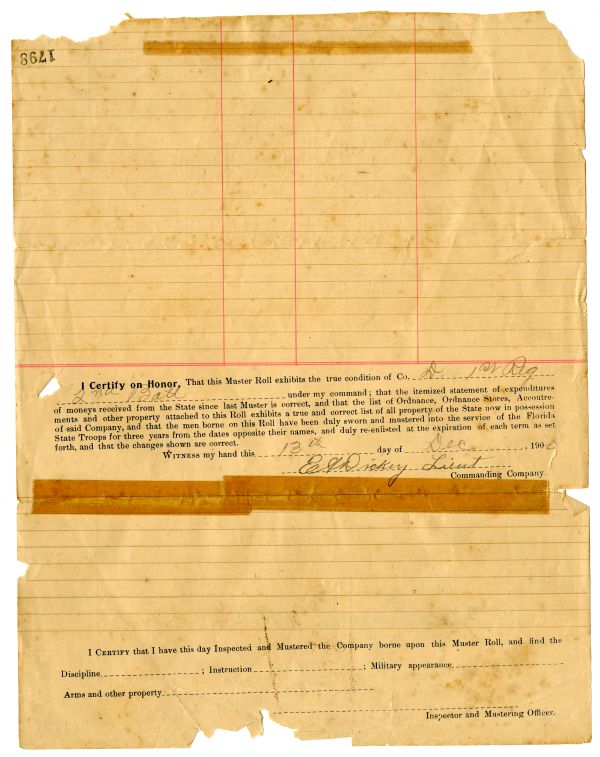 1798
I Certify on Honor, That this Muster Roll exhibits the true condition of Co. D 1st Reg
2nd Batt under my command; that the itemized statement of expenditures
of moneys received from the State since last Muster is correct, and that the list of Ordnance, Ordnance Stores, Accoutre-
ments and other property attached to this Roll exhibits a true and correct list of all property of the State now in possession
of said Company, and that the men borne on this Roll have been duly sworn and mustered into the service of the Florida
State Troops for three years from the dates opposite their names, and duly re-enlisted at the expiration of each term as set
forth, and that the changes shown are correct.
WITNESS my hand this 13th day of Dec, 190
Lieut
Commanding Company
I CERTIFY that I have this day Inspected and Mustered the Company borne upon this Muster Roll, and find the
Discipline ; Instruction ; Military appearance
Arms and other property
Inspector and Mustering Officer.